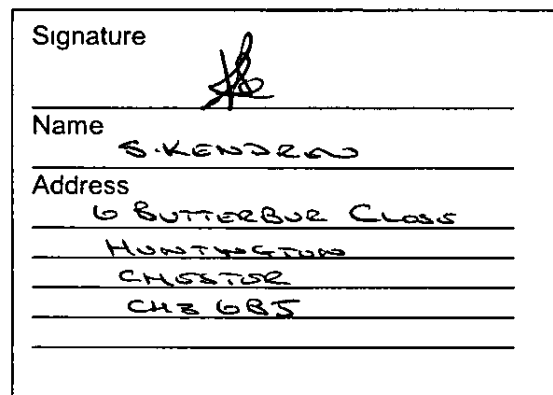 Signature
Name
S. KENDREW
Address
6 BUTTERBUR CLOSE
HUNTINGTON
CHESTER
CH3 6BS